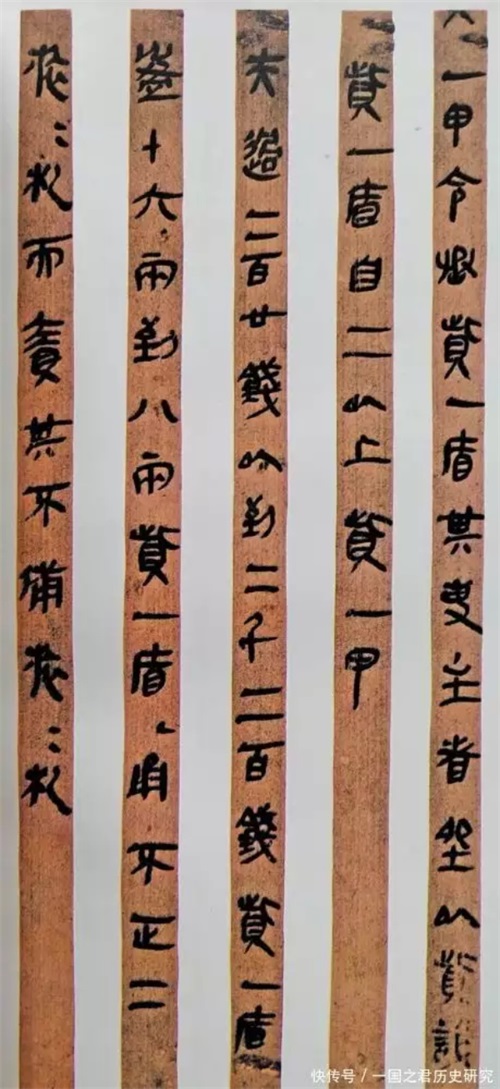 一甲令丞貲一盾其吏主者坐以貲誶
貲一盾自二以上貲一甲
夫過二百廿錢以到二千二百錢貲一盾
盈十六兩到八兩貲一盾甬不正二
旅=札而責其不備旅=札
快传号/一国之君历史研究